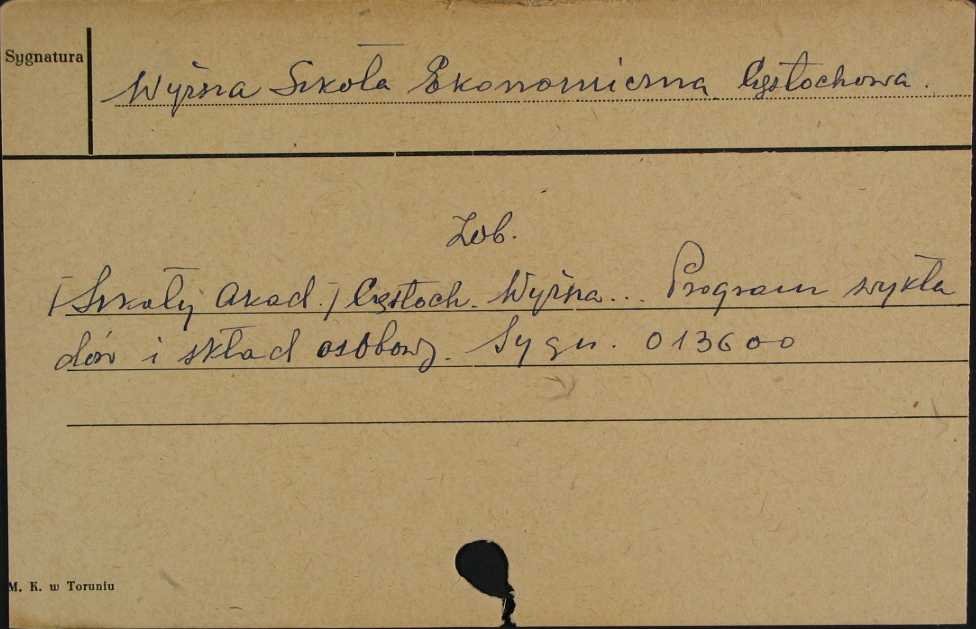 Sygnatura
Wyższa Szkoła Ekonomiczna Częstochowa.
Zob.
/Szkoły Akad./ Częstoch. Wyższa... Program wykła
dów i skład osobowy. Sygn. 013600
M. K. w Toruniu